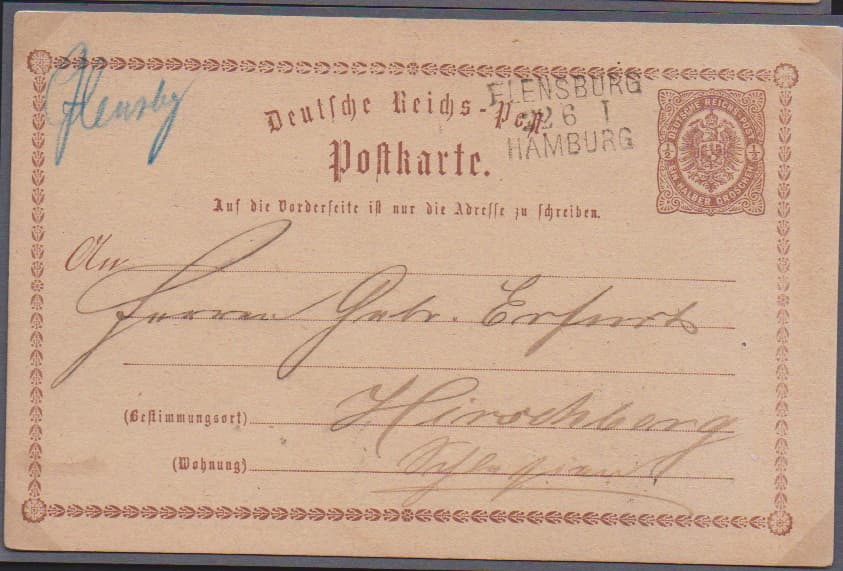 Flensbg
FLENSBURG
22 6 I
HAMBURG
Deutsche Reichs-Post
Postkarte.
DEUTSCHE REICHS-POST
½ ½
EIN HALBER GROSCHEN
Auf die Vorderseite ist nur die Adresse zu schreiben.
An
Herren Gebr. Erfurt
(Bestimmungsort) Hirschberg
(Wohnung) Schlesien